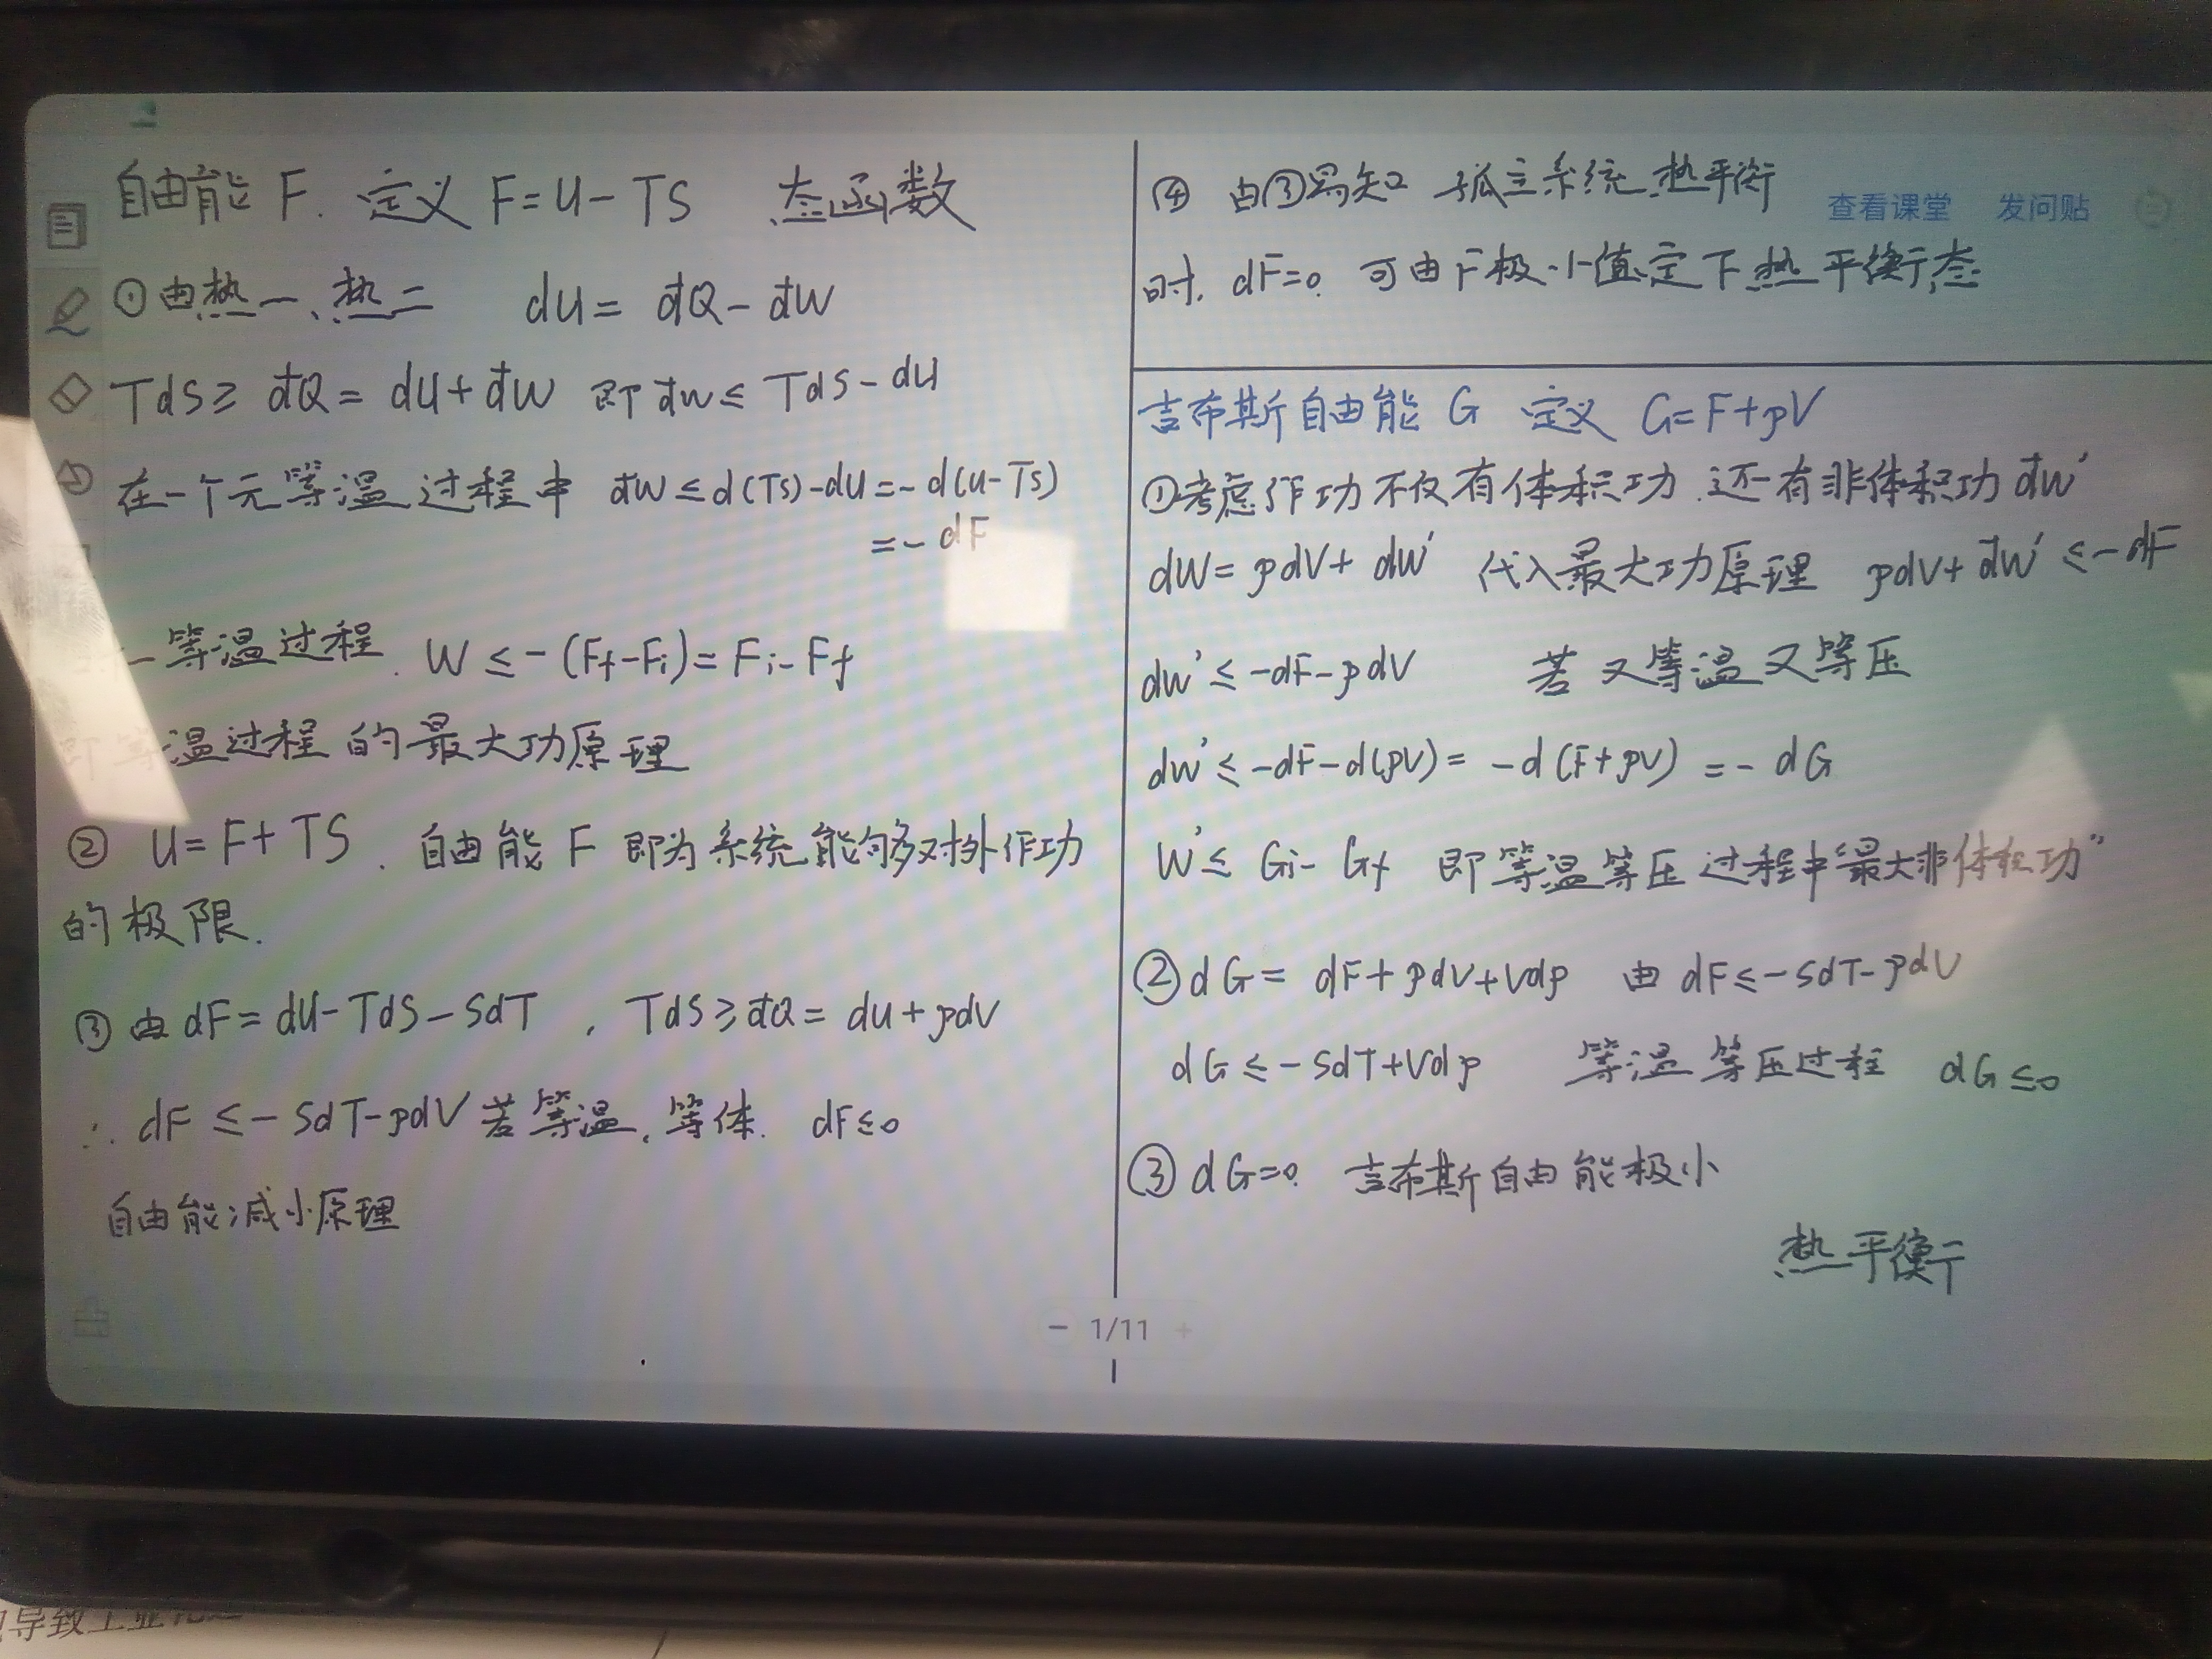 自由能 F. 定义 F=U-TS 态函数
①由热一、热二 dU= đQ-đW
TdS≥ đQ= dU+đW 即 đW≤ TdS-dU
在一个元等温过程中 đW≤d(TS)-dU=-d(U-TS)
=-dF
一等温过程. W≤-(Ff-Fi)=Fi-Ff
即等温过程的最大功原理
② U=F+TS. 自由能 F 即为系统能够对外作功
的极限.
③ 由 dF=dU-TdS-SdT , TdS≥đQ= dU+pdV
∴ dF≤-SdT-pdV 若等温、等体. dF≤0
自由能减小原理
④ 由③易知 孤立系统.热平衡
时. dF=0. 可由F极小值定下热平衡态
查看课堂 发问贴
吉布斯自由能 G 定义 G=F+pV
①考虑作功不仅有体积功.还有非体积功đW'
dW= pdV+ dW' 代入最大功原理 pdV+đW'≤-dF
dW'≤-dF-pdV 若又等温又等压
dW'≤-dF-d(pV)= -d(F+pV) =-dG
W'≤ Gi-Gf 即等温等压过程中最大非体积功"
②dG= dF+pdV+Vdp 由 dF≤-SdT-pdV
dG≤-SdT+Vdp 等温等压过程 dG≤0
③ dG=0. 吉布斯自由能极小
热平衡
1/11